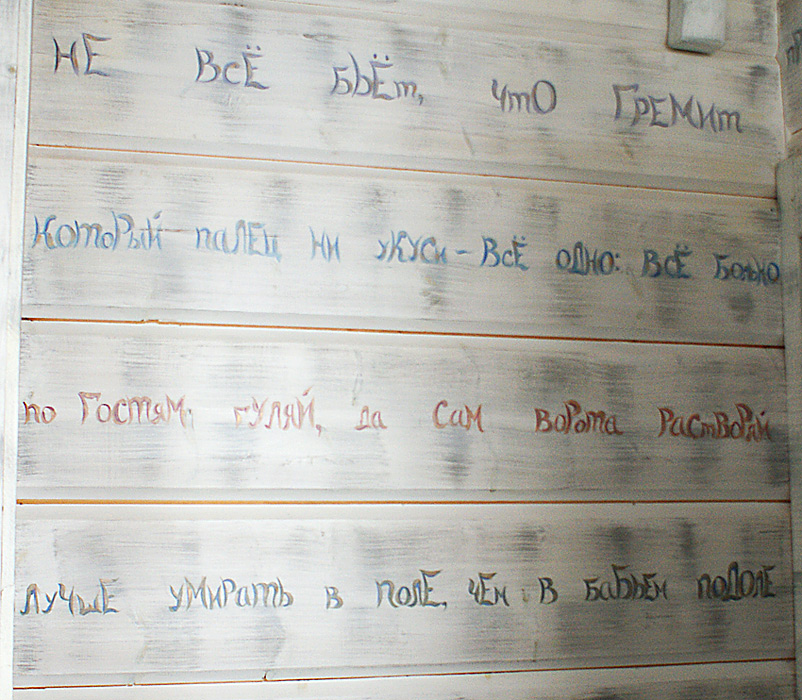 НЕ ВСЁ БЬЁТ, ЧТО ГРЕМИТ
КОТОРЫЙ ПАЛЕЦ НИ УКУСИ - ВСЁ ОДНО: ВСЁ БОЛЬНО
ПО ГОСТЯМ ГУЛЯЙ, ДА САМ ВОРОТА РАСТВОРЯЙ
ЛУЧШЕ УМИРАТЬ В ПОЛЕ, ЧЕМ В БАБЬЕМ ПОДОЛЕ